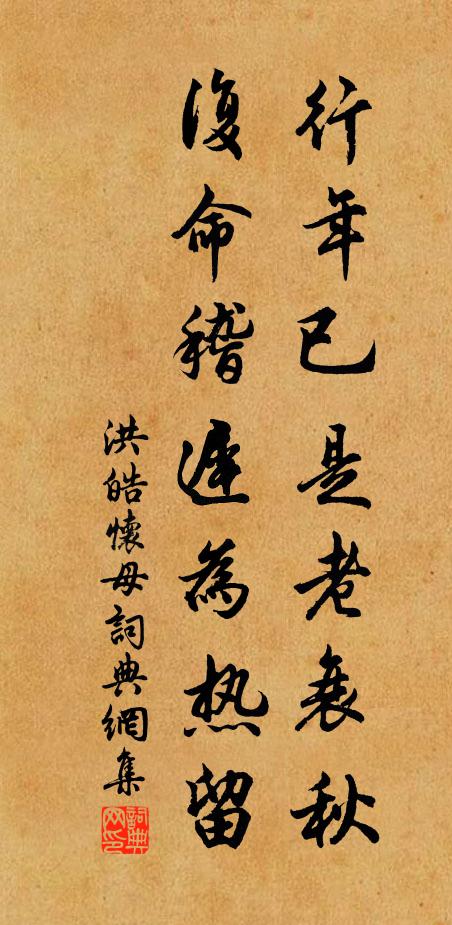 行年已是老衰秋
復命稽遲為热留
洪皓懷母詞典網集
詞典網印